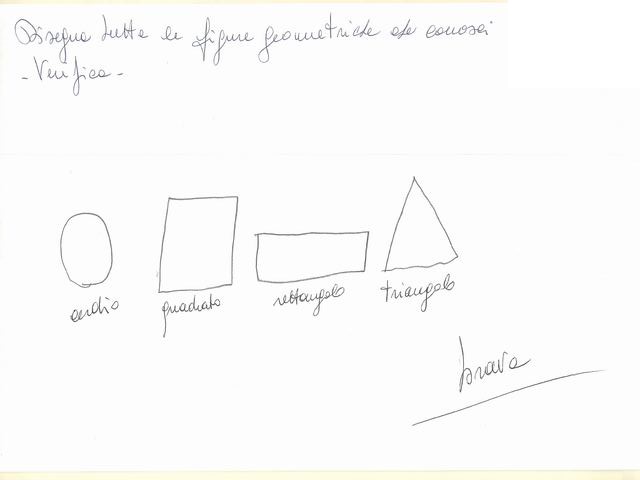 Disegna tutte le figure geometriche che conosci
- Verifica -
cerchio quadrato rettangolo triangolo
brava